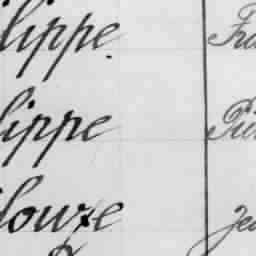 lippe. Fra
lippe Pier
louze Jea